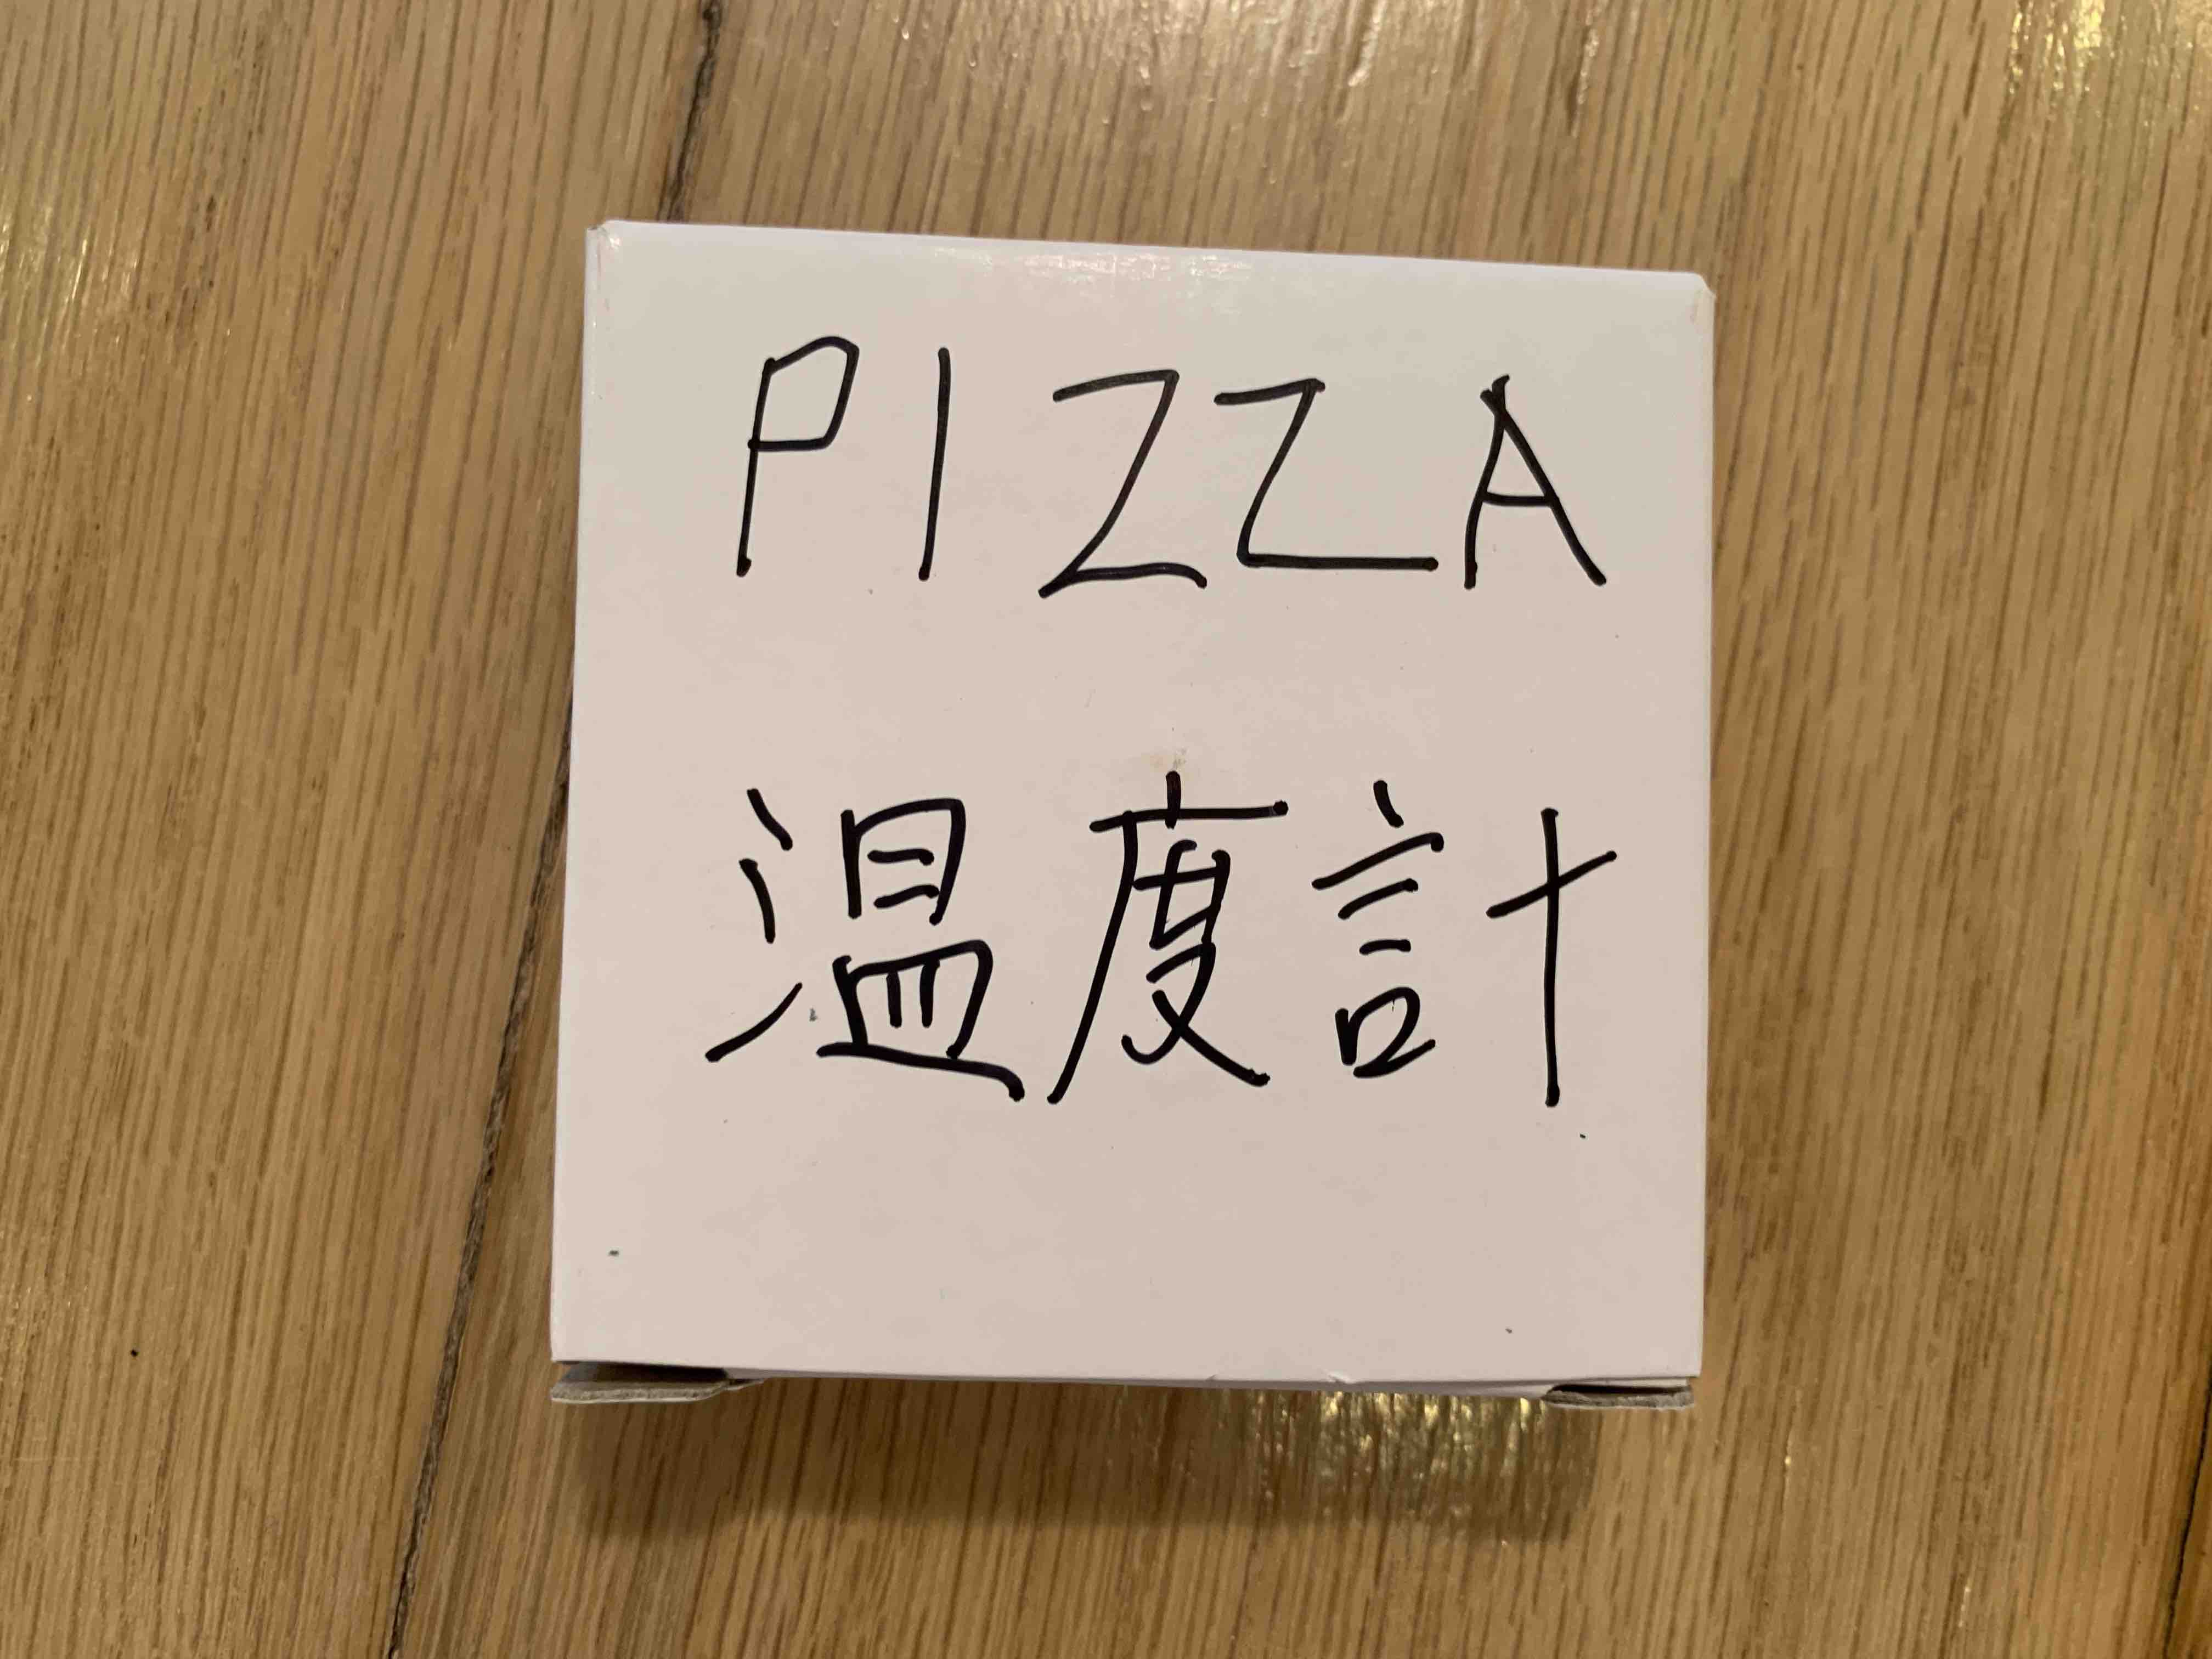 PIZZA
温度計